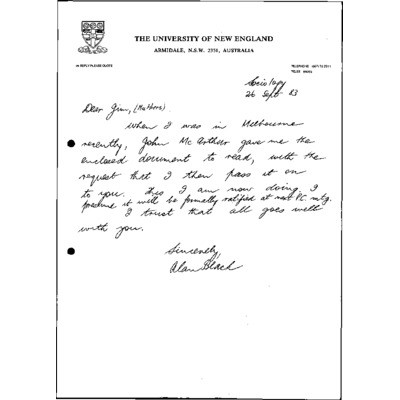 THE UNIVERSITY OF NEW ENGLAND
ARMIDALE, N.S.W. 2351, AUSTRALIA
IN REPLY PLEASE QUOTE
Sociology
26 Sept 83
Dear Jim, (Mathers).
When I was in Melbourne
recently, John McArthur gave me the
enclosed document to read, with the
request that I then pass it on
to you. This I am now doing. I
presume it will be formally ratified at next P.C. mtg.
I trust that all goes well
with you.
Sincerely,
Alan Black